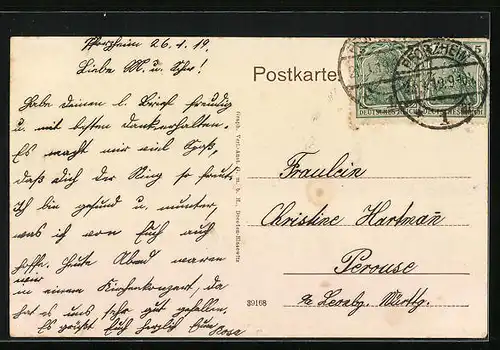 Pforzheim 26.1.19.
Liebe M. u. Schw!
Habe deinen l. Brief freudig
u. mit besten Dank erhalten.
Es macht mir viel Spaß,
daß dich der Ring so freut.
Ich bin gesund u. munter,
was ich von Euch auch
hoffe. Heute Abend waren
wir
in einem Kirchenkonzert, da
hat es uns sehr gut gefallen.
Es grüßt Euch herzlich Eure
Rosa
Postkarte
PFORZHEIM
1
5
DEUTSCHES REICH
DEUTSCHES REICH
39168
Fräulein
Christine Hartmañ
Perouse
Leonbg. Württg.